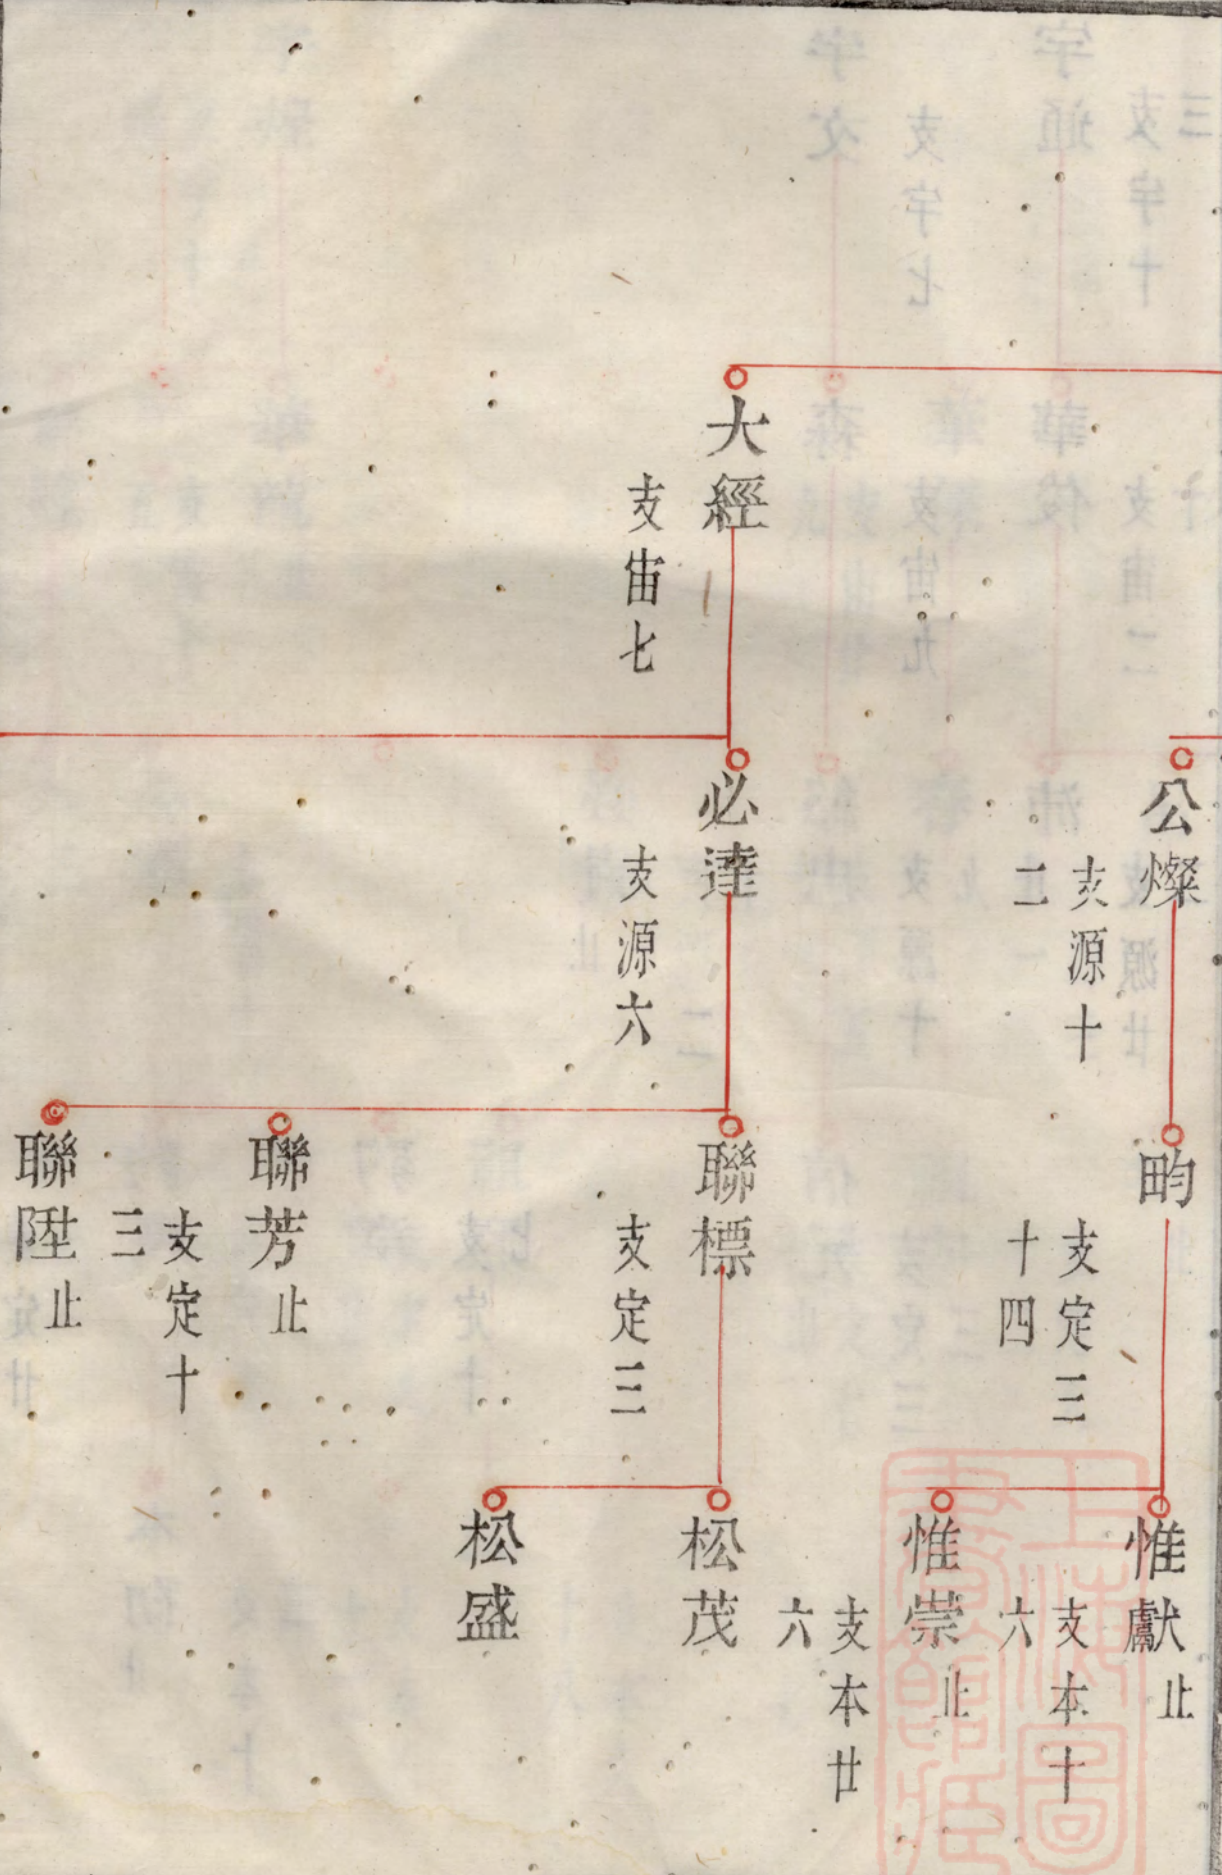 大經
支宙七
公燦
支源十
二
必達
支源六
畇
支定三
十四
聯標
支定三
聯芳止
支定十
三
聯陞止
惟獻止
支本十
六
惟崇止
支本廿
六
松茂
松盛